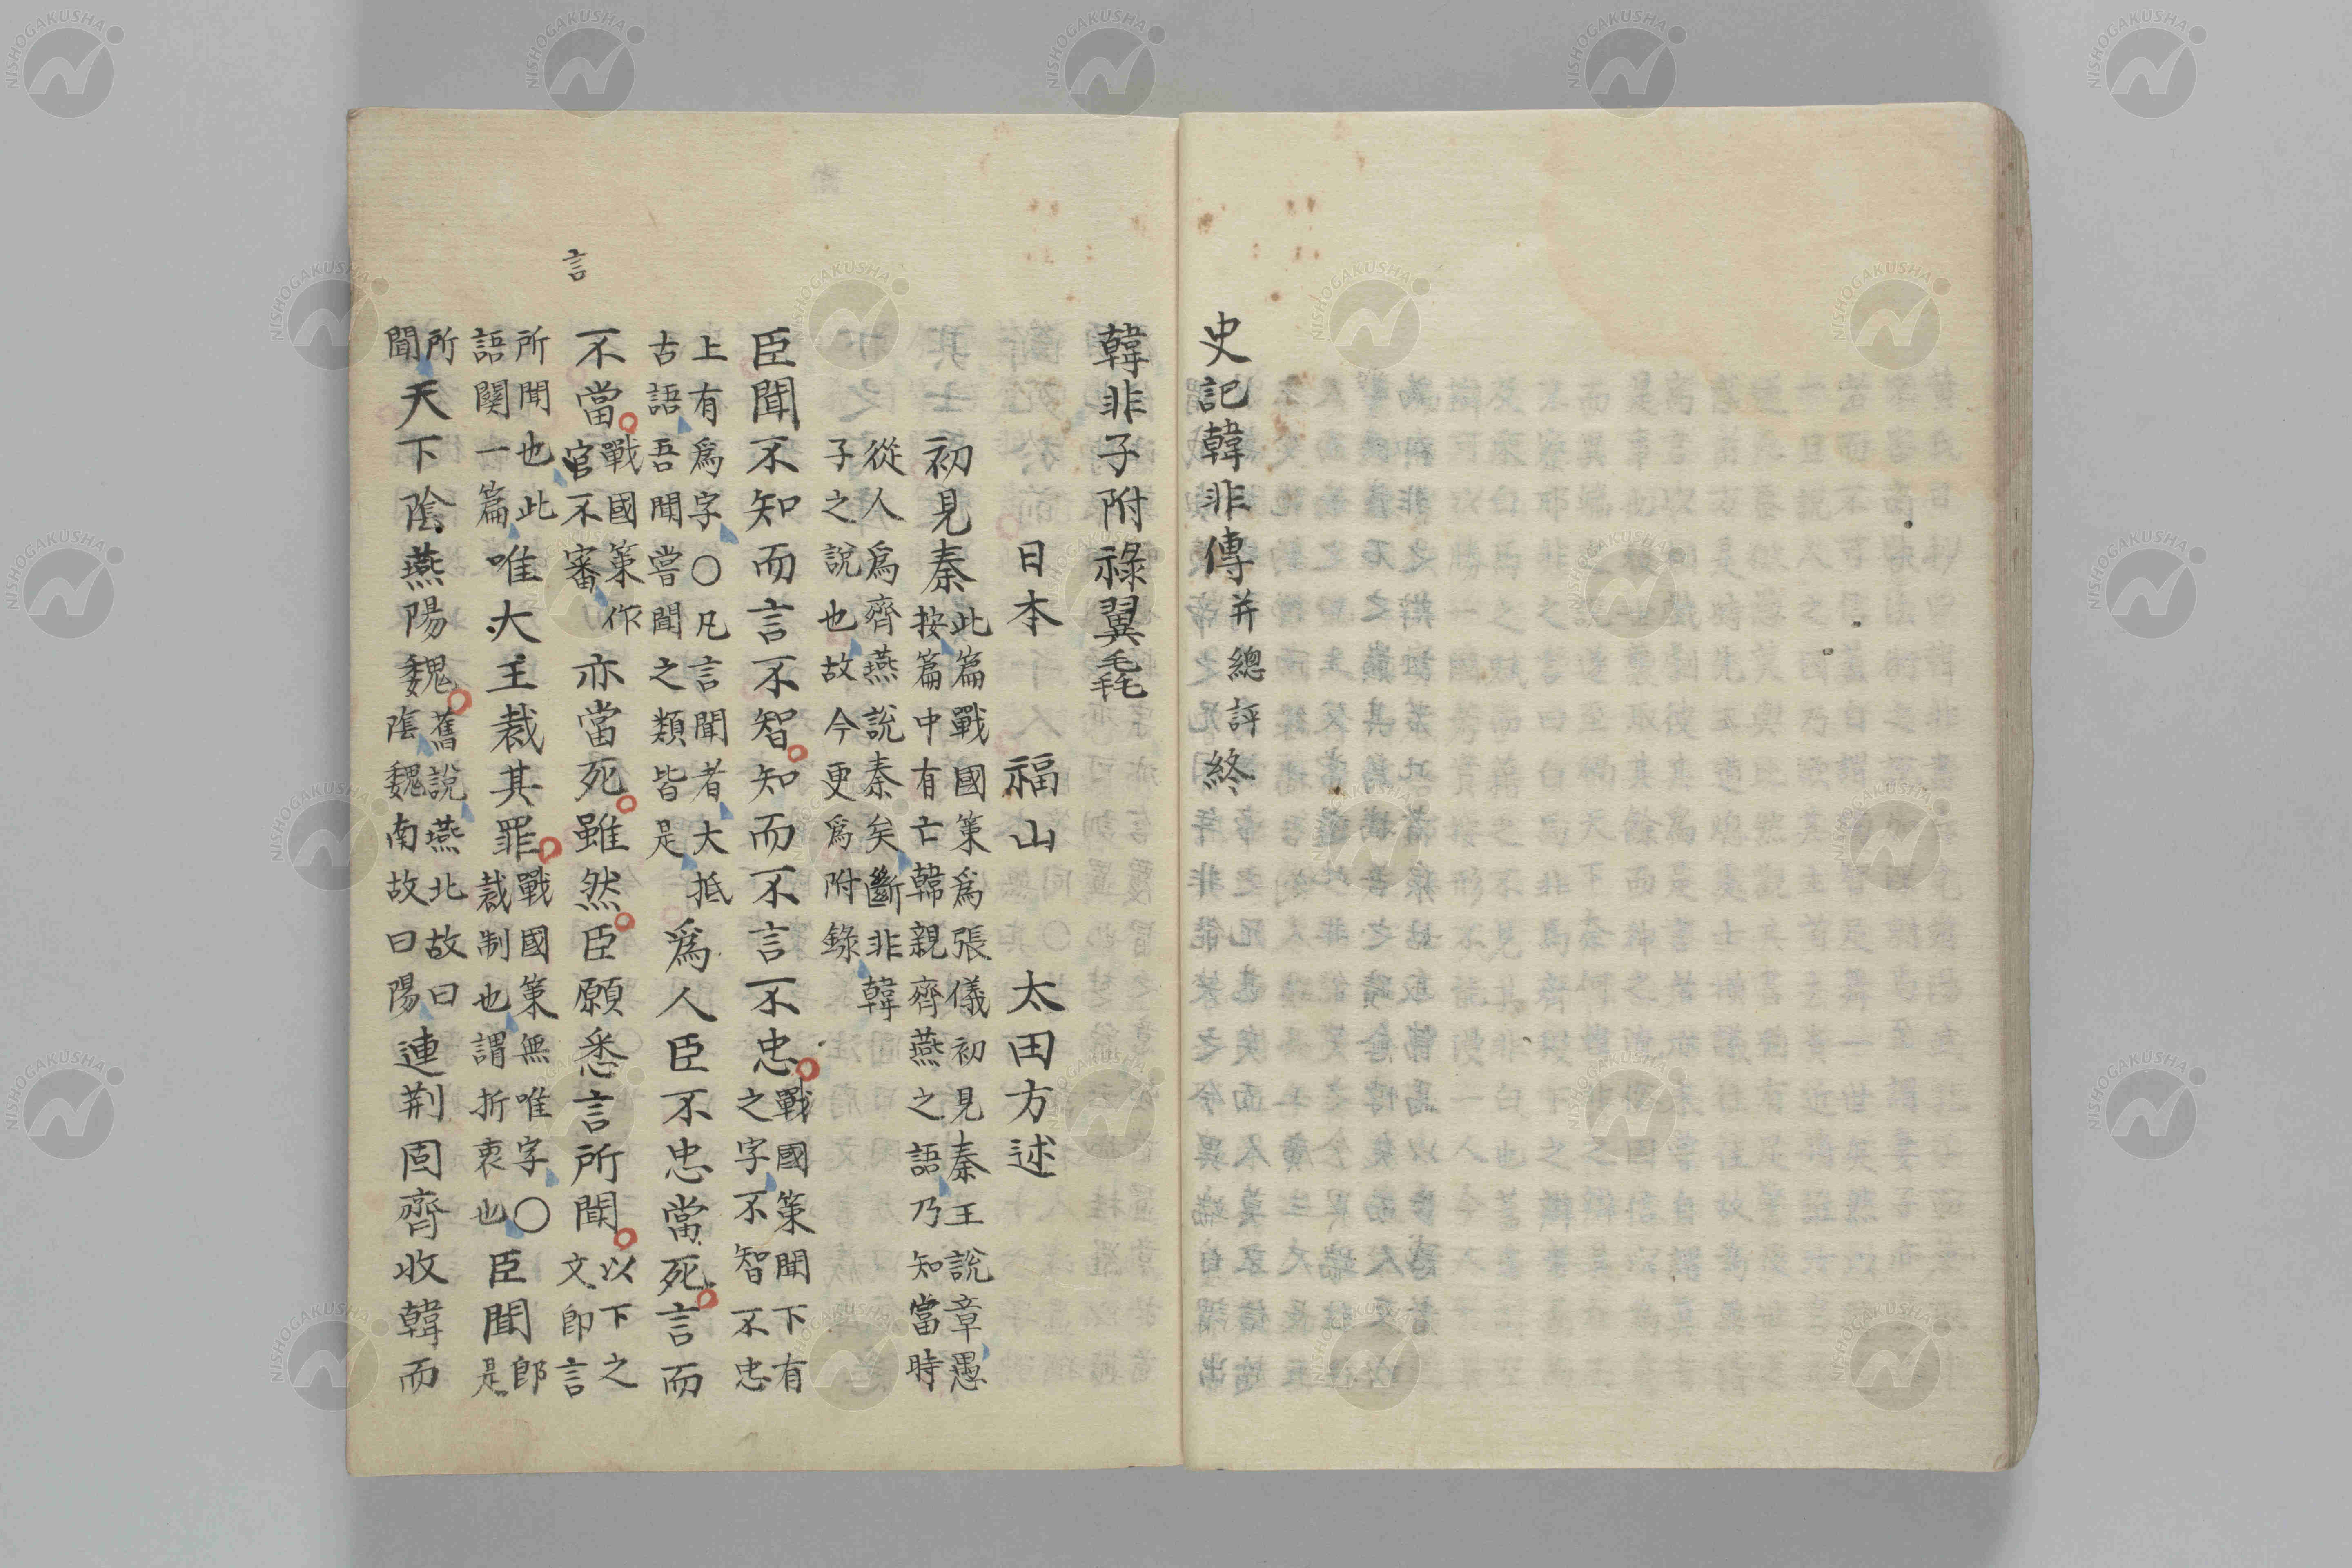 史記韓非傳并總評終
韓非子附祿翼毳
日本 福山 太田方述
初見秦
此篇戰國策爲張儀初見秦王說章愚
按篇中有亡韓親齊燕之語乃知當時
從人爲齊燕說秦矣斷非韓
子之說也故今更爲附錄
臣聞不知而言不智知而不言不忠
戰國策聞下有
之字不智不忠
上有爲字○凡言聞者大抵
古語吾聞嘗聞之類皆是
爲人臣不忠當死言而
言
不當
戰國策作
官不審
亦當死雖然臣願悉言所聞
以下之
文即言
所聞也此
語関一篇
唯大主裁其罪
戰國策無唯字○
裁制也謂折衷也
臣聞
即
是
所
聞
天下陰燕陽魏
舊說燕北故曰
陰魏南故曰陽
連荆固齊收韓而
NISHOGAKUSHA